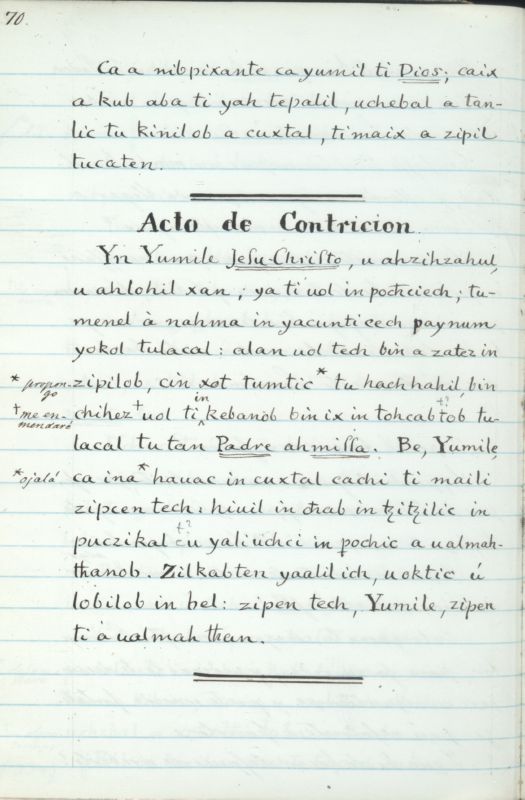 70.
Ca a nibpixante ca yumil ti Dios; caix
a kub aba ti yah tepalil, uchebal a tan-
lic tu kinilob a cuxtal, timaix a zipil
tucaten.
Acto de Contricion
Yn Yumile Jesu-Christo, u ahzihzahul,
u ahlohil xan; ya ti uol in pochciech; tu-
menel à nahma in yacunticech paynum
yokol tulacal: alan uol tech bin a zatez in
* propon-
go
zipilob, cin xot tumtic* tu hachhahil, bin
† me en-
mendaré
chihez† uol ti in kebanob bin ix in tohcabtob tu-
t?
lacal tu tan Padre ahmissa. Be, Yumile,
* ojalá
ca ina* hauac in cuxtal cachi ti maili
zipcen tech: hiuil in
puczikal cu yaliuchci in pochic a ualmah-
t?
thanob. Zilkabten yaalil ich, uoktic ú
lobilob in bel: zipen tech, Yumile, zipen
ti à ualmah than.